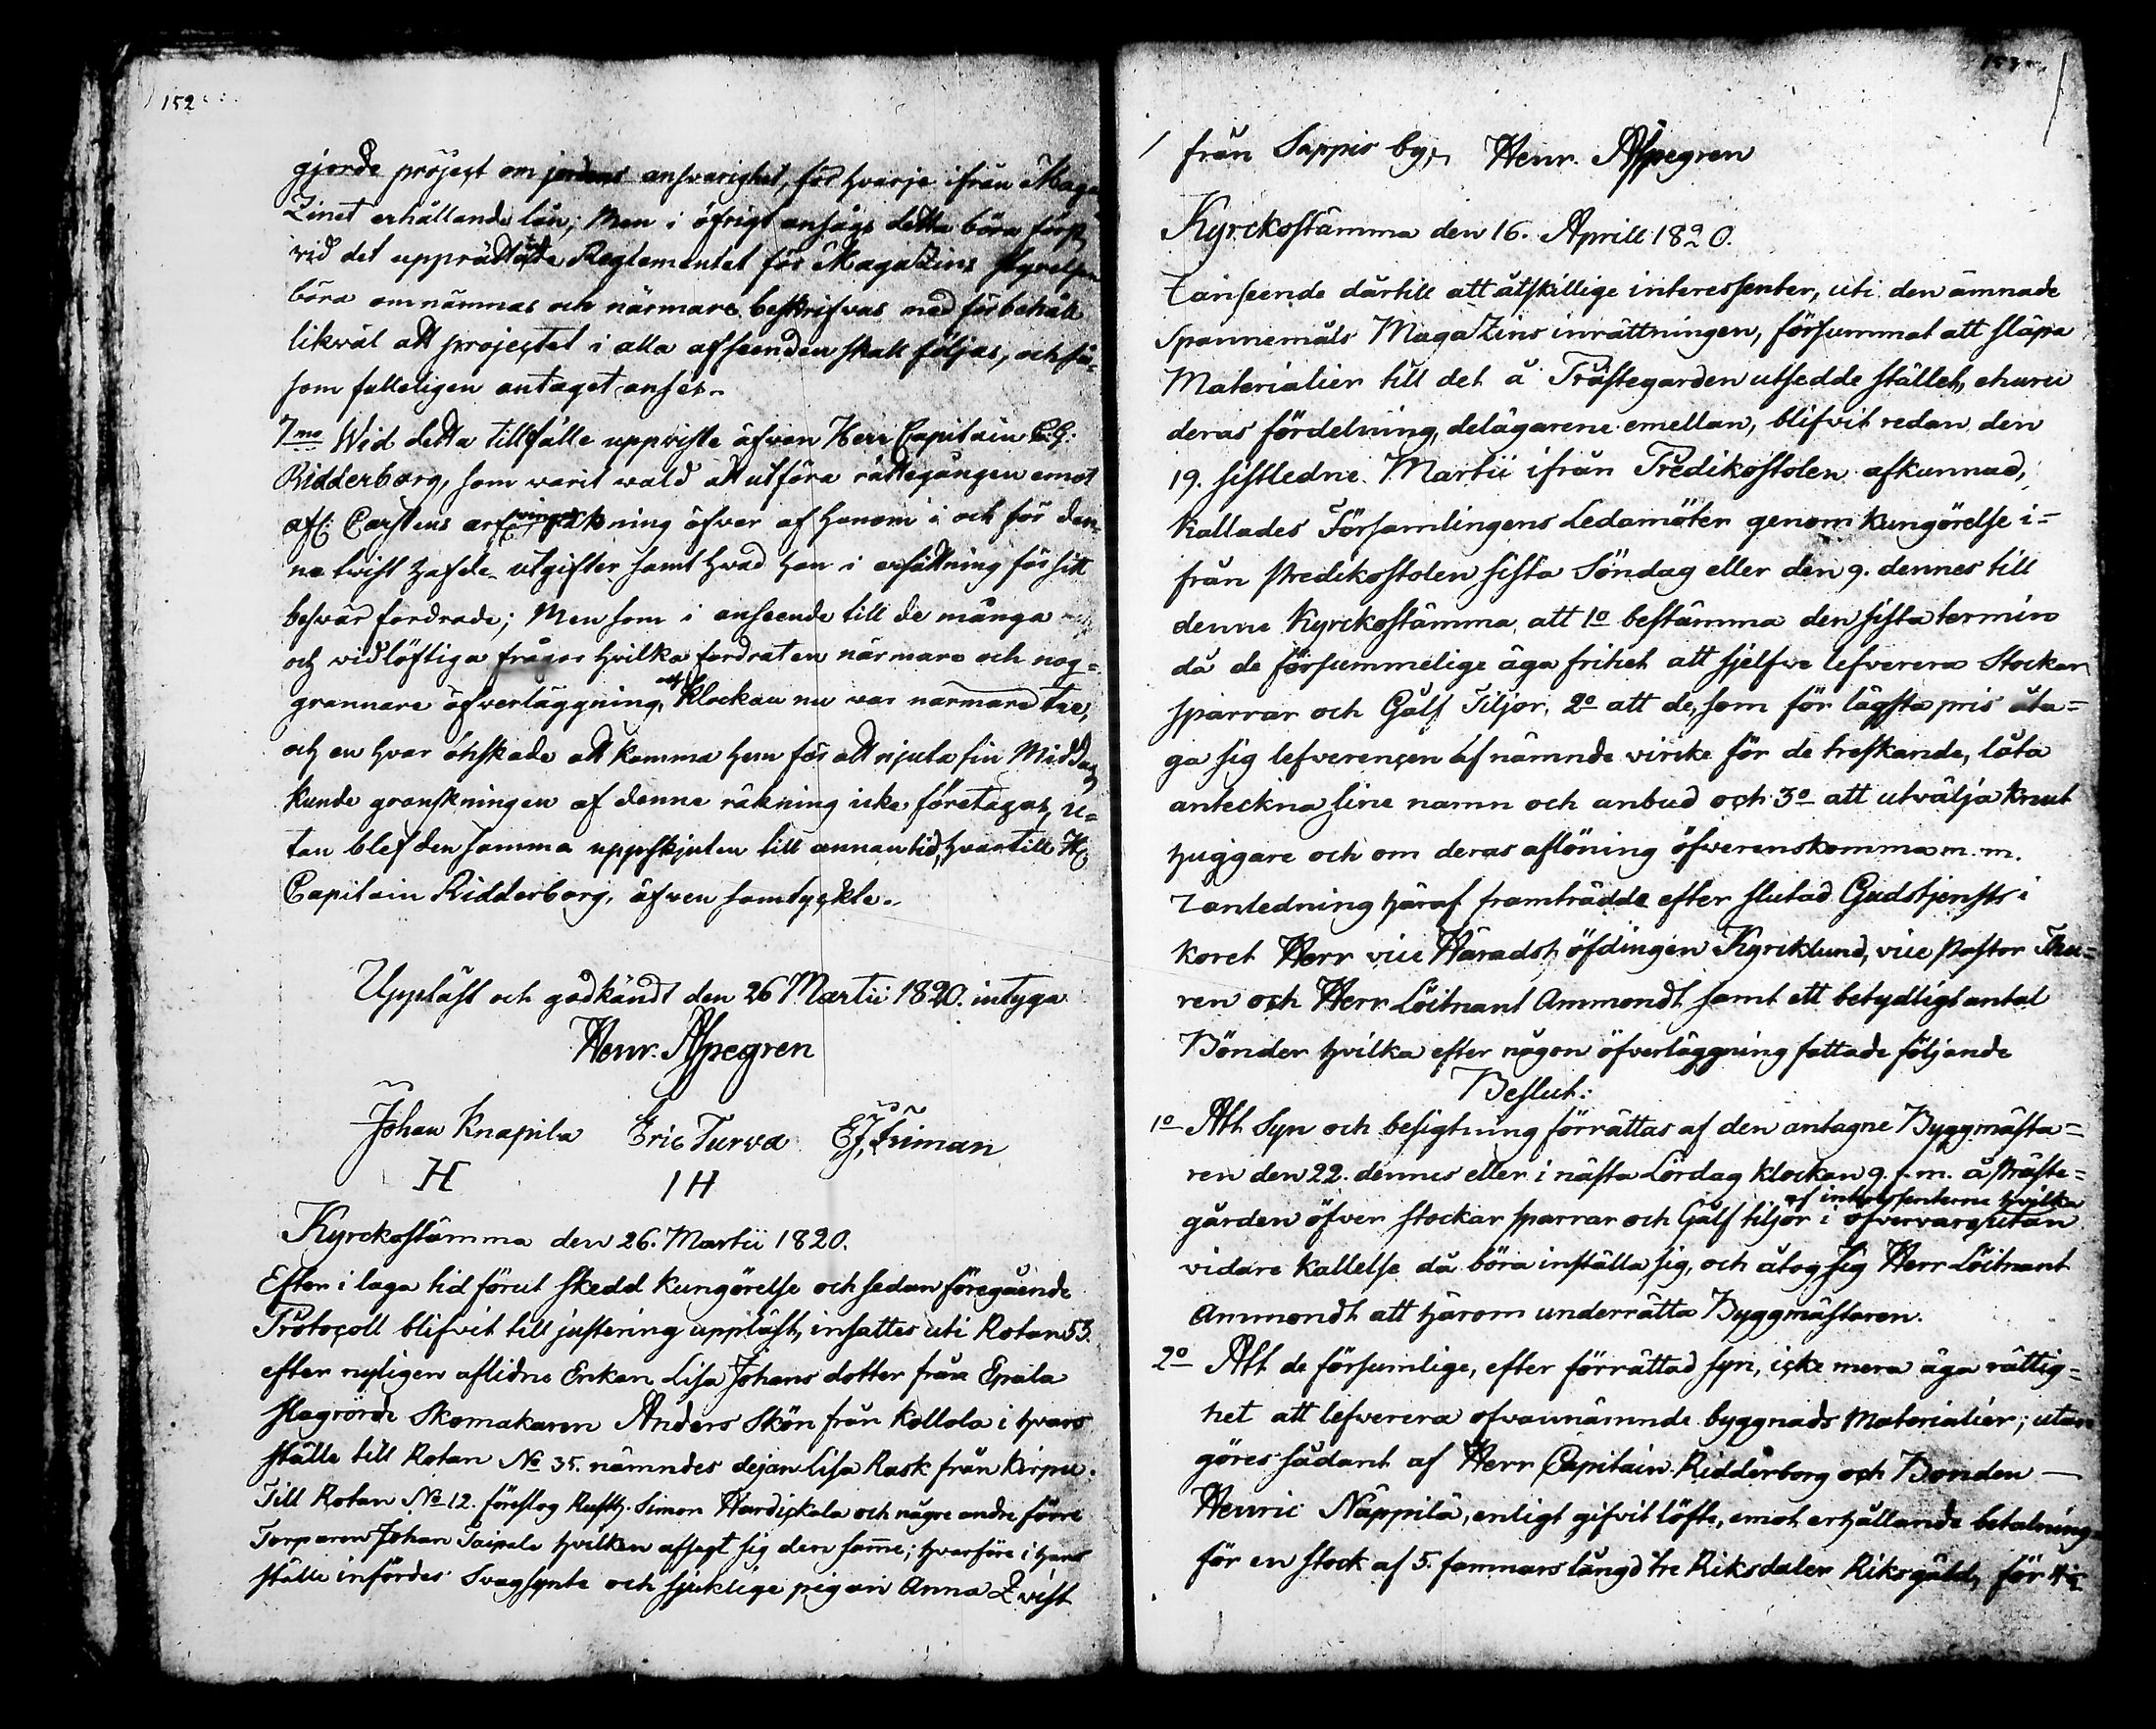 152
gjorde project om jordens ansvarighet, för hvarje ifrån Maga
Zinet erhållande lån; Men i öfrigt ansågs detta böra först
vid det upprättade Reglementet för MagaZins styrelsen
böra omnämnas och närmare beskrifvas med förbehåll
likväl att projectet i alla afseenden skall följas, och så-
som fulleligen antaget anses.
7mo Wid detta tillfälle uppviste äfven Herr Capitain C.G.
Ridderborg, som varit vald att utföra rättegången emot
afl: Carstens arfvingar räkning öfver af honom i och för den-
na tvist hafde utgifter samt hvad han i ersättning för sitt
besvär fordrade; Men som i anseende till de många
och vidlöftiga frågor hvilka fordrat en närmare och nog-
grannare öfverläggning, klockan nu var närmare tre,
och en hvar önskade att komma hem för att njuta sin Middag
kunde granskningen af denne räkning icke företagas, u-
tan blef densamma uppskjuten till annan tid, hvartill H:
Capitain Ridderborg, äfven samtyckte.
Uppläst och godkändt den 26 Martii 1820. intyga
Henr. Aspegren
Johan Knapila Eric Turva EJ, Friman
H IH
Kyrckostämma den 26. Martii 1820.
Efter i laga tid förut skedd kungörelse och sedan föregående
Protocoll blifvit till justering uppläst, insattes uti Rotan 53.
efter nyligen aflidne Enkan Lisa Johans dotter från Epala
slagrörde Skomakaren Anders Skön från Kollola i hvars
ställe till Rotan No 35. nämndes dejan Lisa Rask från Kirpu.
Till Rotan No 12. föreslog Rusth. Simon Hardickala och någre andre förre
Torparen Johan Taipale hvilken afsagt sig den samme; hvarföre i hans
ställe infördes Svagsynte och sjuklige pigan Anna Qvist
från Sappis by. Henr. Aspegren
Kyrckostämma den 16. Aprill 1820.
I anseende därtill att åtskillige interessenter, uti den ämnade
Spannemåls MagaZins inrättningen, försummat att släpa
Materialier till det å Prästegarden utsedde stället, ehuru
deras fördelning, delägarene emellan, blifvit redan den
19. sistledne Martii ifrån Predikostolen afkunnad,
kallades Församlingens Ledamöter genom kungörelse i-
från Predikostolen sista Söndag eller den 9. dennes till
denne Kyrckostämma, att 1o bestämma den sista termin
då de försummelige äga frihet att sjelfve lefverera Stockar
sparrar och Gålf Tiljor, 2o att de, som för lägsta pris åta-
ga sig lefverençen af nämnde vircke för de treskande, låta
anteckna sine namn och anbud och 3o att utvälja knut
huggare och om deras aflöning öfverenskomma m. m.
I anledning häraf framträdde efter slutad Gudstjenst i
koret Herr vice Häradshöfdingen Kyrcklund, vice Pastor Thu-
ren och Herr Löitnant Ammondt samt ett betydligt antal
Bönder hvilka efter någon öfverläggning fattade följande
Beslut:
1o Att Syn och besigtning förrättas af den antagne Byggmästa-
ren den 22. dennes eller i nästa Lördag klockan 9. f.m. å Präste-
af interessenterne hvilka
gården öfver stockar sparrar och Gålf tiljor i öfvervaro utan
vidare kallelse då böra inställa sig, och åtog sig Herr Löitnant
Ammondt att härom underrätta Byggmästaren.
2o Att de försumlige, efter förrättad syn, icke mera äga rättig-
het att lefverera ofvannämnde byggnads Materialier; utan
göres sådant af Herr Capitain Ridderborg och Bonden —
Henric Näppilä, enligt gifvit löfte, emot erhållande betalning
för en stock af 5. famnars längd tre Riksdaler Riksgäld, för 4½